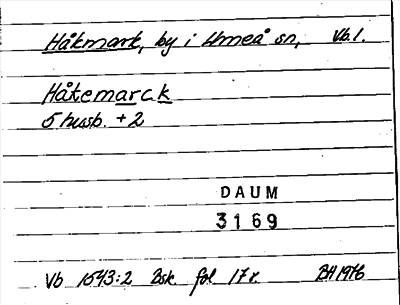 Håkmark, by i Umeå sn, Vb.l.
Håkemarck
5 hussb. + 2
DAUM
3169
Vb 1543:2 Bsk. fol 17 r. BH 1976